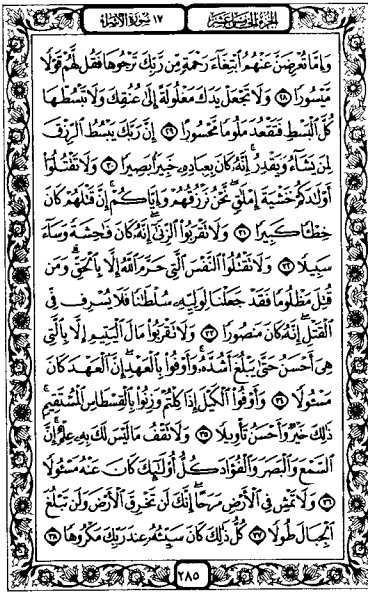 ١٧ سورة الإسراء
الجزء الخامس عشر
وَإِمَّا تُعْرِضَنَّ عَنْهُمُ ابْتِغَاءَ رَحْمَةٍ مِّن رَّبِّكَ تَرْجُوهَا فَقُل لَّهُمْ قَوْلًا
مَّيْسُورًا ۝٢٨ وَلَا تَجْعَلْ يَدَكَ مَغْلُولَةً إِلَىٰ عُنُقِكَ وَلَا تَبْسُطْهَا
كُلَّ الْبَسْطِ فَتَقْعُدَ مَلُومًا مَّحْسُورًا ۝٢٩ إِنَّ رَبَّكَ يَبْسُطُ الرِّزْقَ
لِمَن يَشَاءُ وَيَقْدِرُ ۚ إِنَّهُ كَانَ بِعِبَادِهِ خَبِيرًا بَصِيرًا ۝٣٠ وَلَا تَقْتُلُوا
أَوْلَادَكُمْ خَشْيَةَ إِمْلَاقٍ ۖ نَّحْنُ نَرْزُقُهُمْ وَإِيَّاكُمْ ۚ إِنَّ قَتْلَهُمْ كَانَ
خِطْئًا كَبِيرًا ۝٣١ وَلَا تَقْرَبُوا الزِّنَىٰ ۖ إِنَّهُ كَانَ فَاحِشَةً وَسَاءَ
سَبِيلًا ۝٣٢ وَلَا تَقْتُلُوا النَّفْسَ الَّتِي حَرَّمَ اللَّهُ إِلَّا بِالْحَقِّ ۗ وَمَن
قُتِلَ مَظْلُومًا فَقَدْ جَعَلْنَا لِوَلِيِّهِ سُلْطَانًا فَلَا يُسْرِف فِّي
الْقَتْلِ ۖ إِنَّهُ كَانَ مَنصُورًا ۝٣٣ وَلَا تَقْرَبُوا مَالَ الْيَتِيمِ إِلَّا بِالَّتِي
هِيَ أَحْسَنُ حَتَّىٰ يَبْلُغَ أَشُدَّهُ ۚ وَأَوْفُوا بِالْعَهْدِ ۖ إِنَّ الْعَهْدَ كَانَ
مَسْئُولًا ۝٣٤ وَأَوْفُوا الْكَيْلَ إِذَا كِلْتُمْ وَزِنُوا بِالْقِسْطَاسِ الْمُسْتَقِيمِ ۚ
ذَٰلِكَ خَيْرٌ وَأَحْسَنُ تَأْوِيلًا ۝٣٥ وَلَا تَقْفُ مَا لَيْسَ لَكَ بِهِ عِلْمٌ ۚ إِنَّ
السَّمْعَ وَالْبَصَرَ وَالْفُؤَادَ كُلُّ أُولَٰئِكَ كَانَ عَنْهُ مَسْئُولًا
۝٣٦ وَلَا تَمْشِ فِي الْأَرْضِ مَرَحًا ۖ إِنَّكَ لَن تَخْرِقَ الْأَرْضَ وَلَن تَبْلُغَ
الْجِبَالَ طُولًا ۝٣٧ كُلُّ ذَٰلِكَ كَانَ سَيِّئُهُ عِندَ رَبِّكَ مَكْرُوهًا ۝٣٨
٢٨٥